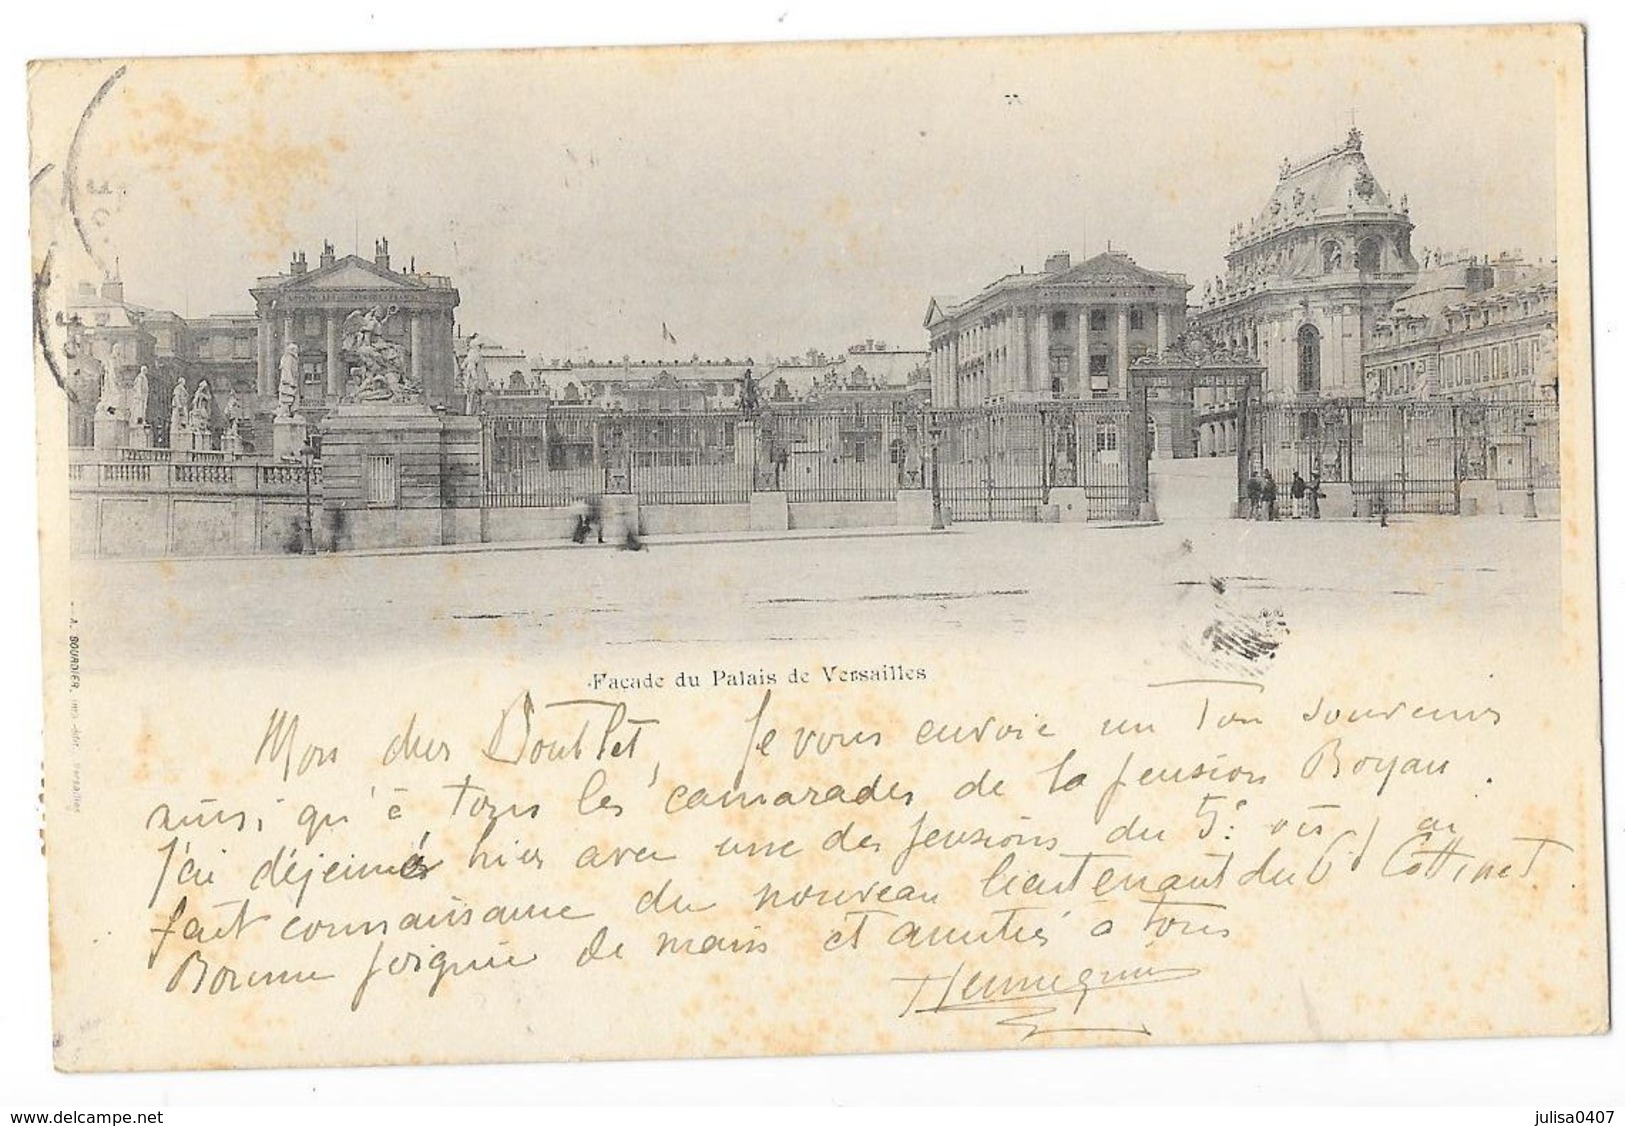 A. BOURDIER, Versailles
Façade du Palais de Versailles
Mon cher Doutllet, Je vous envoie un bon souvenir
ainsi qu'à tous les camarades de la pension Boyau.
J'ai déjeiné hier avec une des pensions du 5e où j'ai
fait connaissance du nouveau lieutenant du 6d Cottinet.
Bonne poignée de main et amitiés a tous
Hennequin
delcampe.net
julisa0407